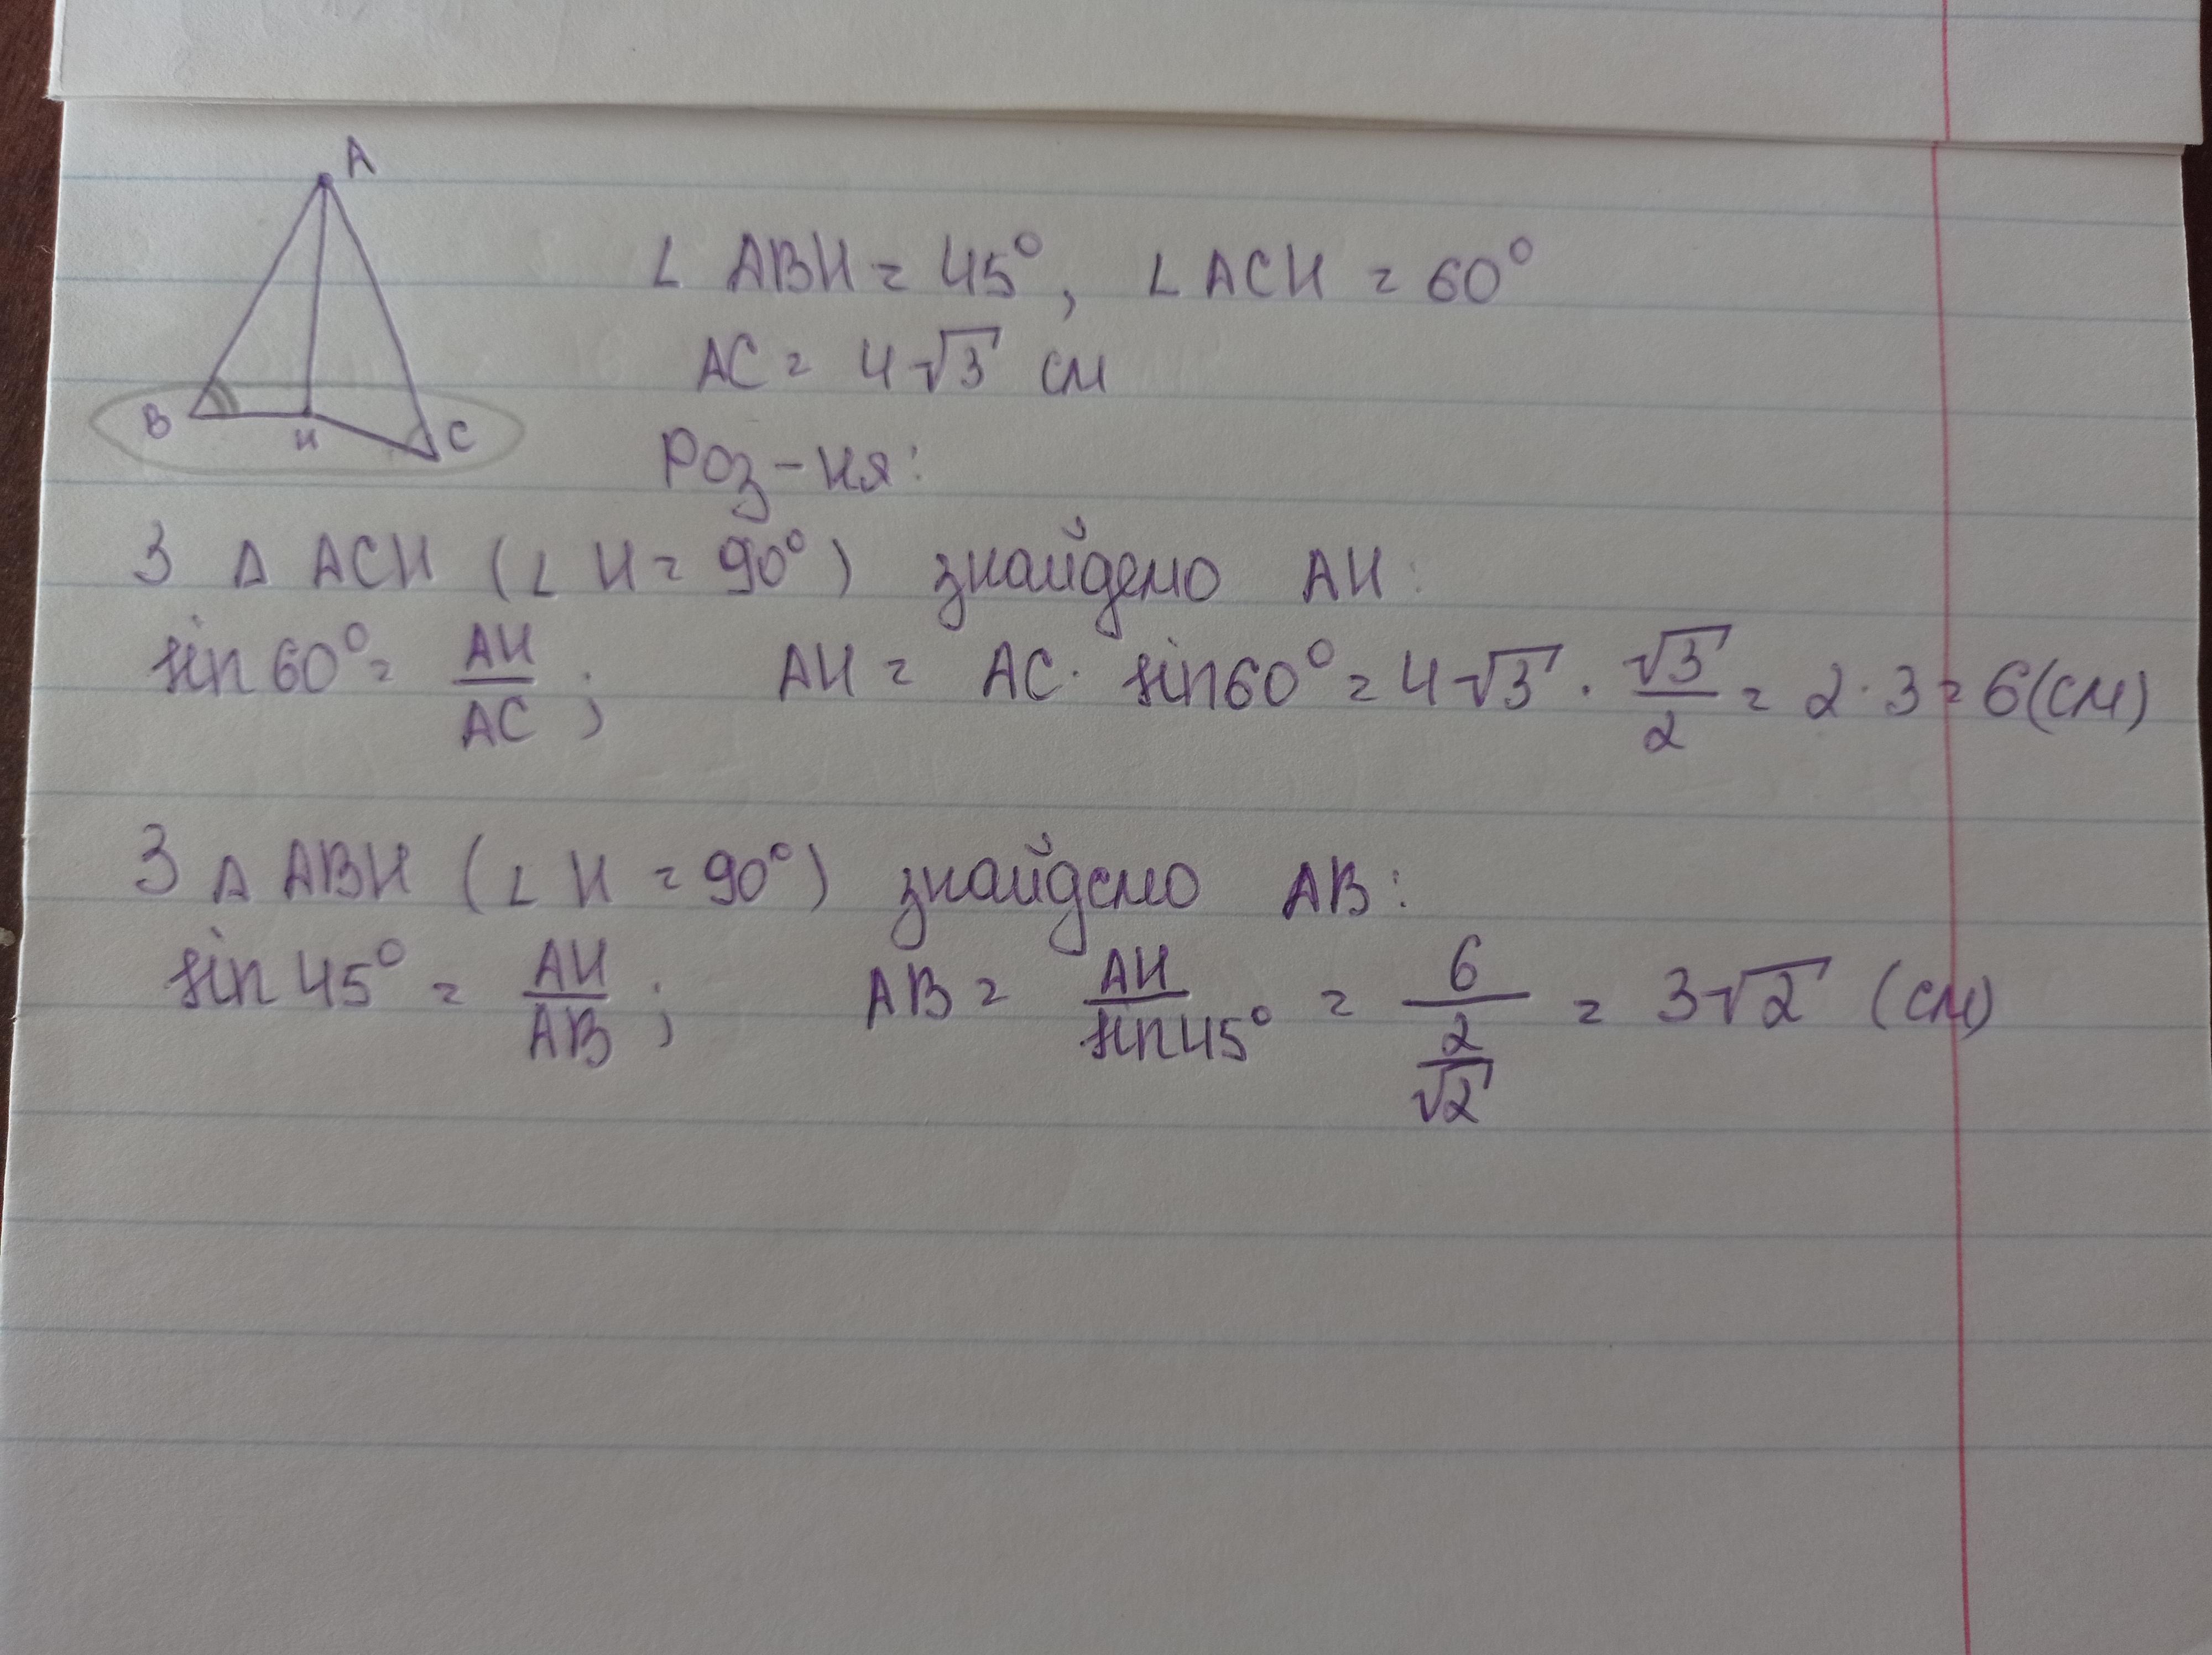 A
B H C
∠ ABH = 45°, ∠ ACH = 60°
AC = 4√3 см
Роз-ня:
З Δ ACH (∠ H = 90°) знайдемо AH:
sin 60° = AH/AC ; AH = AC · sin 60° = 4√3 · √3/2 = 2 · 3 = 6 (см)
З Δ ABH (∠ H = 90°) знайдемо AB:
sin 45° = AH/AB ; AB = AH/sin 45° = 6/(2/√2) = 3√2 (см)